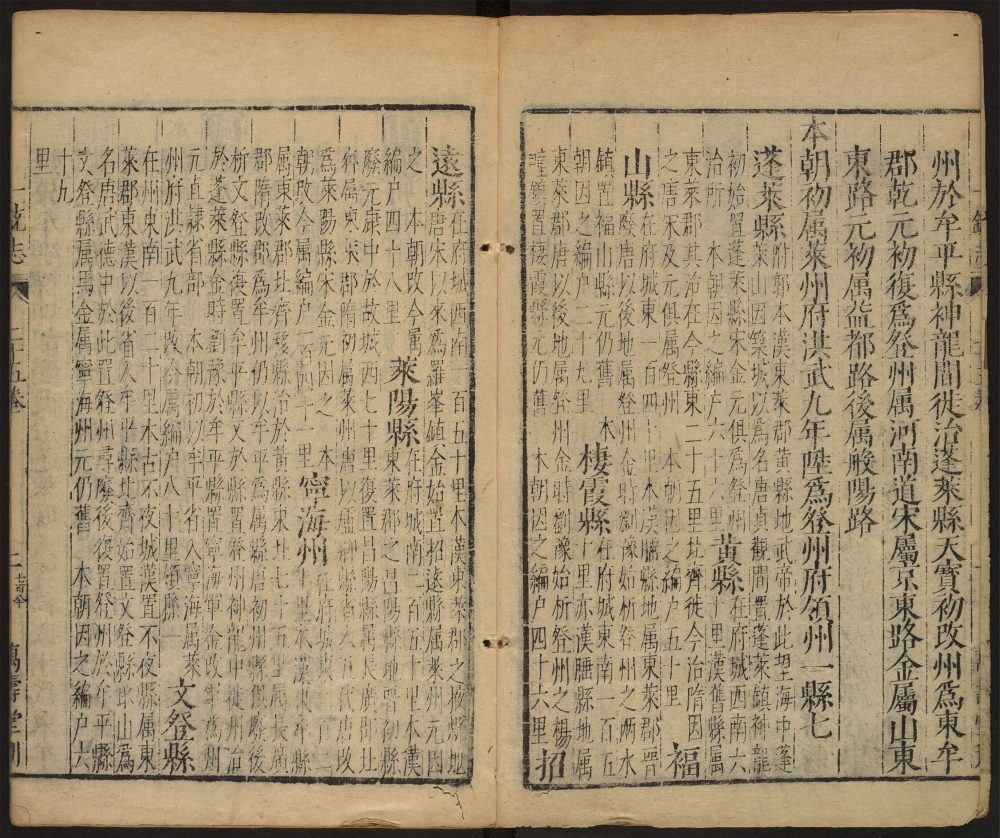 州於牟平縣神龍間徙治蓬萊縣天寶初改州爲東牟
郡乾元初復爲登州属河南道宋屬京東路金屬山東
東路元初属益都路後属般陽路
本朝初属萊州府洪武九年陞爲登州府領州一縣七
蓬萊縣
附郭本漢東萊郡黃縣地武帝於此望海中蓬
萊山因築城以爲名唐貞觀間置蓬萊鎮神龍
初始置蓬萊縣宋金元俱爲登州
治所 本朝因之編户六十六里
黃縣
在府城西南六
十里漢舊縣屬
東萊郡其治在今縣東二十五里北齊徙今治隋因
之唐宋及元俱屬登州 本朝因之編户五十里
福
山縣
在府城東一百四十里本漢腄縣地属東萊郡晉
廢唐以後地属登州金時劉豫始析登州之兩水
鎮置福山縣元仍舊 本
朝因之編户二十九里
棲霞縣
在府城東南一百五
十里亦漢腄縣地属
東萊郡唐以後地属登州金時劉豫始析登州之楊
疃鎮置棲霞縣元仍舊 本朝因之編户四十六里
招
遠縣
在府城西南一百五十里本漢東萊郡之掖縣地
唐宋以來爲羅峯鎮金始置招遠縣属萊州元因
之 本朝改今属
編户四十八里
萊陽縣
在府城南二百五十里本漢
東萊郡之昌陽縣地晉初縣
廢元康中於故城西七十里復置昌陽縣属長廣郡北
齊属東萊郡隋初属萊州唐以盧鄉縣省入五代唐改
爲萊陽縣宋金元因之 本
朝改今属編户一百四十一里
寧海州
在府城東南二
百二十里漢東牟縣
属東萊郡北齊移縣治於黃縣東七十五里属長廣
郡隋改郡爲牟州仍以牟平爲属縣唐初州縣俱廢後
析文登縣復置牟平縣又於縣置登州神龍中徙州治
於蓬萊縣金時劉豫於牟平縣置寧海軍金改軍爲州
元直隸省部 本朝初以牟平省入寧海属萊
州府洪武九年改今属編户八十里領縣一
文登縣
在州東南一百二十里本古不夜城漢置不夜縣属東
萊郡東漢以後省入牟平縣北齊始置文登縣取山爲
名唐武德中於此置登州尋廢後復置登州於牟平縣
文登縣属焉金属寧海州元仍舊 本朝因之編户六
十九
里
一統志
二十五卷
二
萬壽堂刊